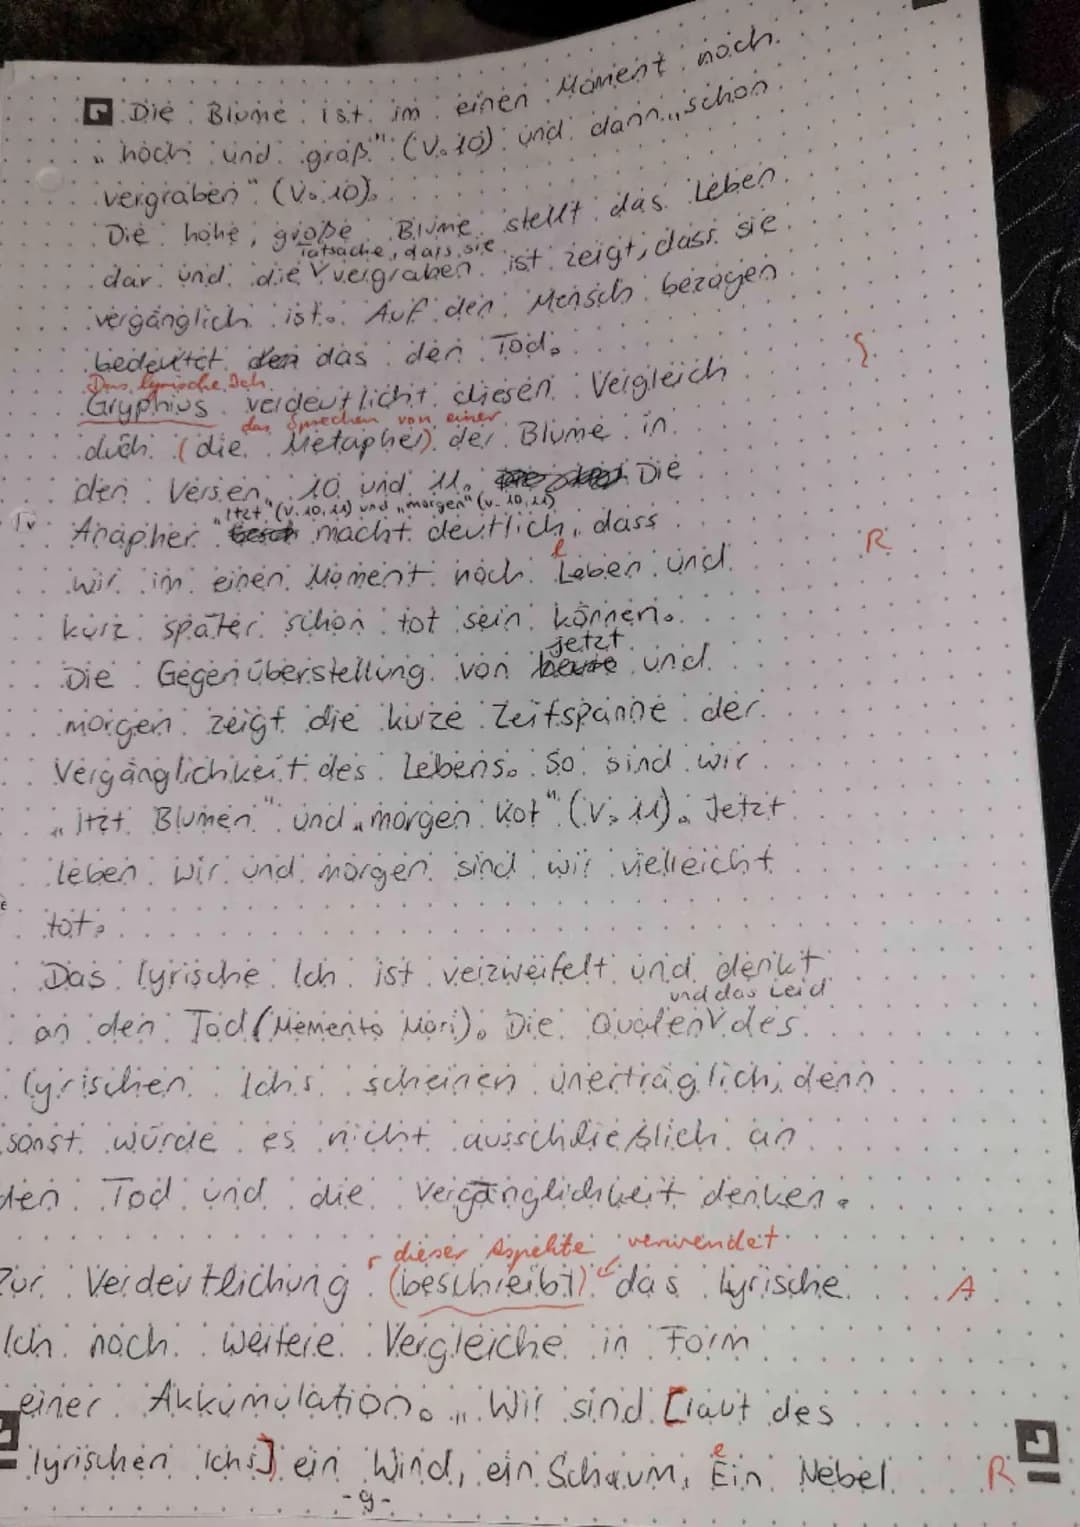 Die Blume ist im einen Moment noch
„hoch und groß" (V. 10) und dann „schon
vergraben" (V. 10).
Die hohe, große Blume stellt das Leben
Tatsache, dass sie
dar und die vergraben ist zeigt, dass sie
vergänglich ist. Auf den Mensch bezogen
bedeutet das den Tod.
Das lyrische Ich
Gryphius verdeutlicht diesen Vergleich
das Sprechen von einer
duch (die Metapher) der Blume in
den Versen 10 und 11. Die
"itzt" (V. 10, 11) und „morgen" (v. 10, 11)
Anapher macht deutlich, dass
l
wir im einen Moment noch Leben und R
kurz später schon tot sein können.
jetzt
Die Gegenüberstellung von heute und
morgen zeigt die kurze Zeitspanne der
Vergänglichkeit des Lebens. So sind wir
„itzt Blumen" und „morgen Kot" (V. 11). Jetzt
leben wir und morgen sind wir vielleicht
tot.
Das lyrische Ich ist verzweifelt und denkt
und das Leid
an den Tod (Memento Mori). Die Qualen des
lyrischen Ichs scheinen unerträglich, denn
sonst würde es nicht ausschließlich an
den Tod und die Vergänglichkeit denken.
dieser Aspekte verwendet
Zur Verdeutlichung (beschreibt) das lyrische A
Ich noch weitere Vergleiche in Form
einer Akkumulation. „Wir sind [laut des
e
lyrischen Ichs] ein Wind, ein Schaum, Ein Nebel R
-9-